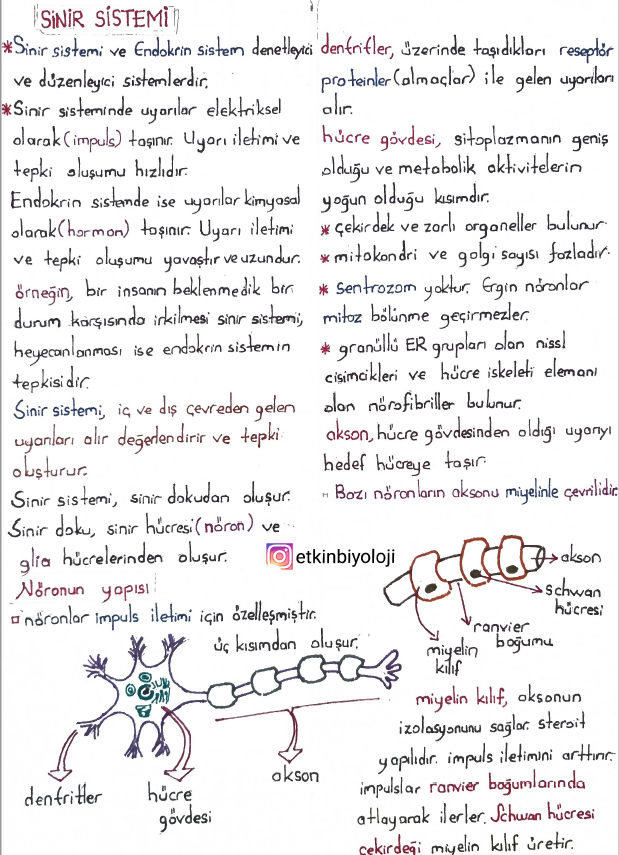 SİNİR SİSTEMİ
*Sinir sistemi ve Endokrin sistem denetleyici
ve düzenleyici sistemlerdir.
*Sinir sisteminde uyarılar elektriksel
olarak (impuls) taşınır. Uyarı iletimi ve
tepki oluşumu hızlıdır.
Endokrin sistemde ise uyarılar kimyasal
olarak (hormon) taşınır. Uyarı iletimi
ve tepki oluşumu yavaştır ve uzundur.
örneğin, bir insanın beklenmedik bir
durum karşısında irkilmesi sinir sistemi,
heyecanlanması ise endokrin sistemin
tepkisidir.
Sinir sistemi, iç ve dış çevreden gelen
uyarıları alır değerlendirir ve tepki
oluşturur.
Sinir sistemi, sinir dokudan oluşur.
Sinir doku, sinir hücresi (nöron) ve
glia hücrelerinden oluşur.
Nöronun yapısı
nöronlar impuls iletimi için özelleşmiştir.
üç kısımdan oluşur.
dentritler
hücre
gövdesi
akson
etkinbiyoloji
dentritler, üzerinde taşıdıkları reseptör
proteinler (almaçlar) ile gelen uyarıları
alır.
hücre gövdesi, sitoplazmanın geniş
olduğu ve metabolik aktivitelerin
yoğun olduğu kısımdır.
* çekirdek ve zarlı organeller bulunur.
* mitokondri ve golgi sayısı fazladır.
* Sentrozom yoktur. Ergin nöronlar
mitoz bölünme geçirmezler.
* granüllü ER grupları olan nissl
cisimcikleri ve hücre iskeleti elemanı
olan nörofibriller bulunur.
akson, hücre gövdesinden aldığı uyarıyı
hedef hücreye taşır.
- Bazı nöronların aksonu miyelinle çevrilidir.
akson
schwan
hücresi
ranvier
boğumu
miyelin
kılıf
miyelin kılıf, aksonun
izolasyonunu sağlar. steroit
yapılıdır. impuls iletimini arttırır.
impulslar ranvier boğumlarında
atlayarak ilerler. Schwan hücresi
çekirdeği miyelin kılıf üretir.